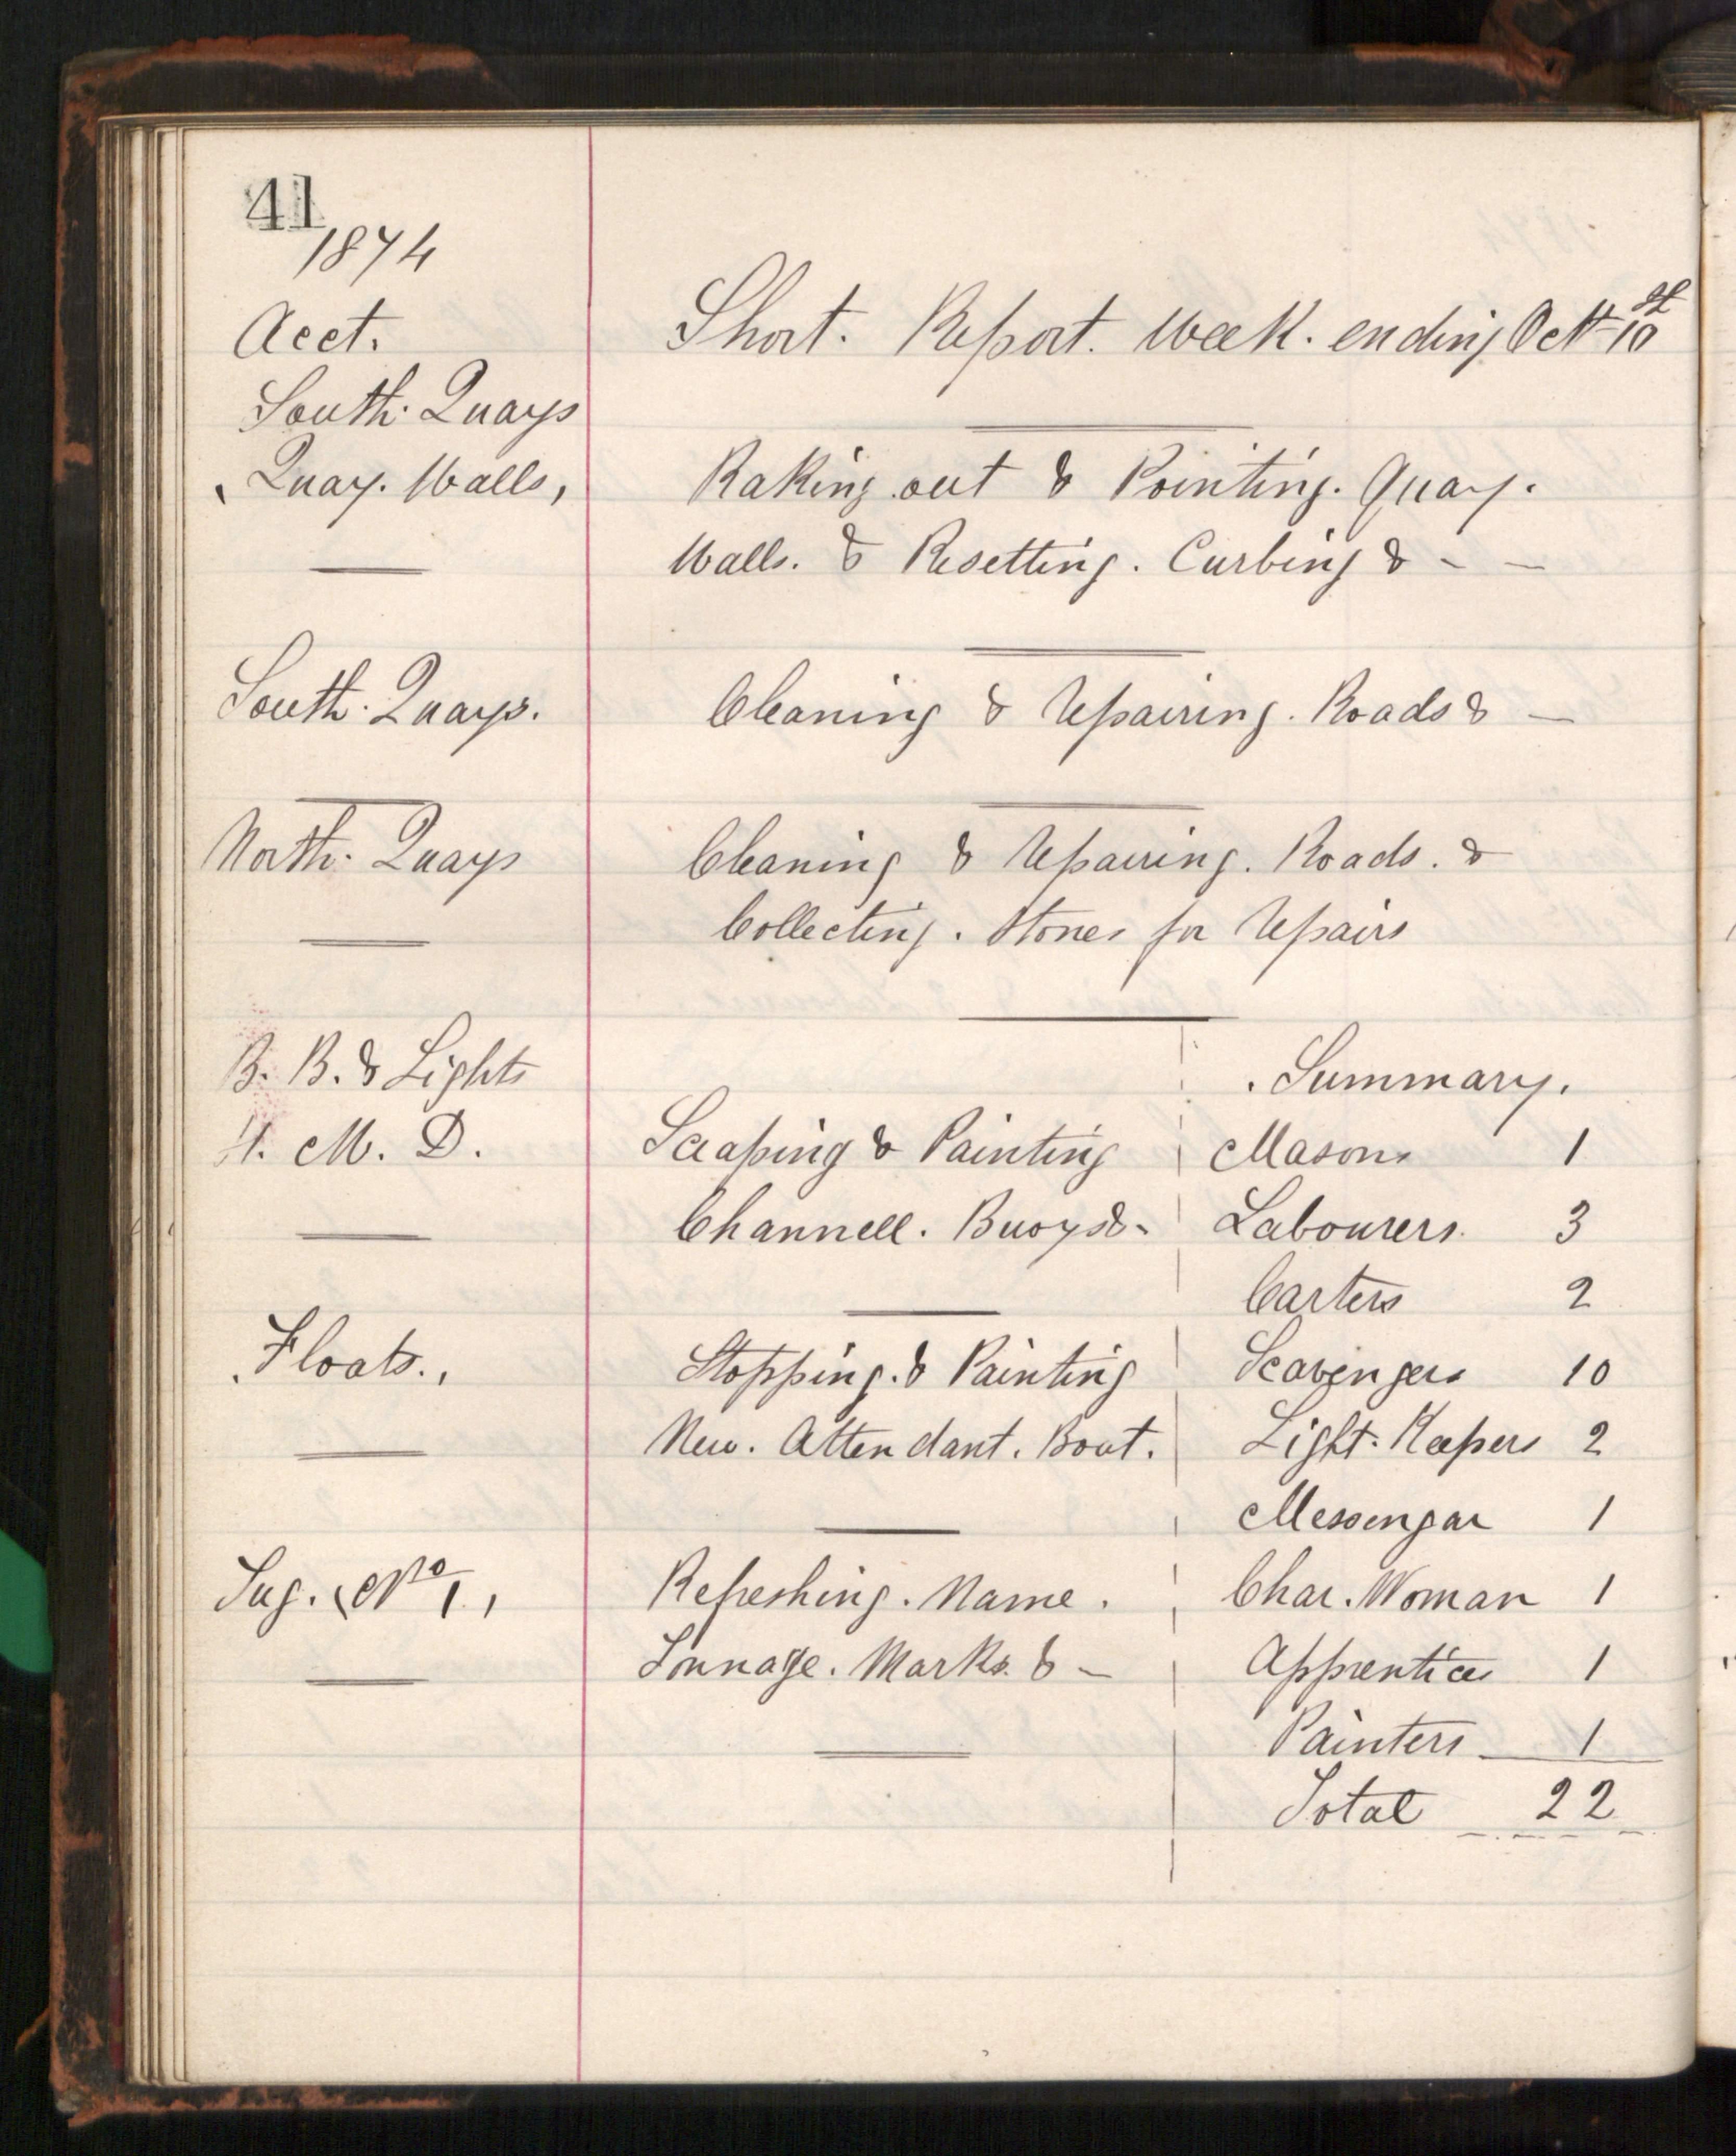 41
1874
Acct.
Short. Report. Week. ending Octr 10th
South. Quays
Quay. Walls,
Raking out & Pointing. Quay.
Walls. & Resetting. Curbing & - -
South. Quays.
Cleaning & Repairing. Roads & -
North. Quays
Cleaning & Repairing. Roads. &
Collecting. Stones for Repairs
B. B. & Lights
H. M. D.
Scraping & Painting
Channell. Buoys & -
Floats.,
Stopping. & Painting
New. Attendant. Boat.
Tug. No 1.,
Refreshing. Name.
Tonnage. Marks. & -
Summary.
Masons 1
Labourers. 3
Carters 2
Scavengers 10
Light. Keepers 2
Messengar 1
Char. Woman 1
Apprentices 1
Painters 1
Total 22